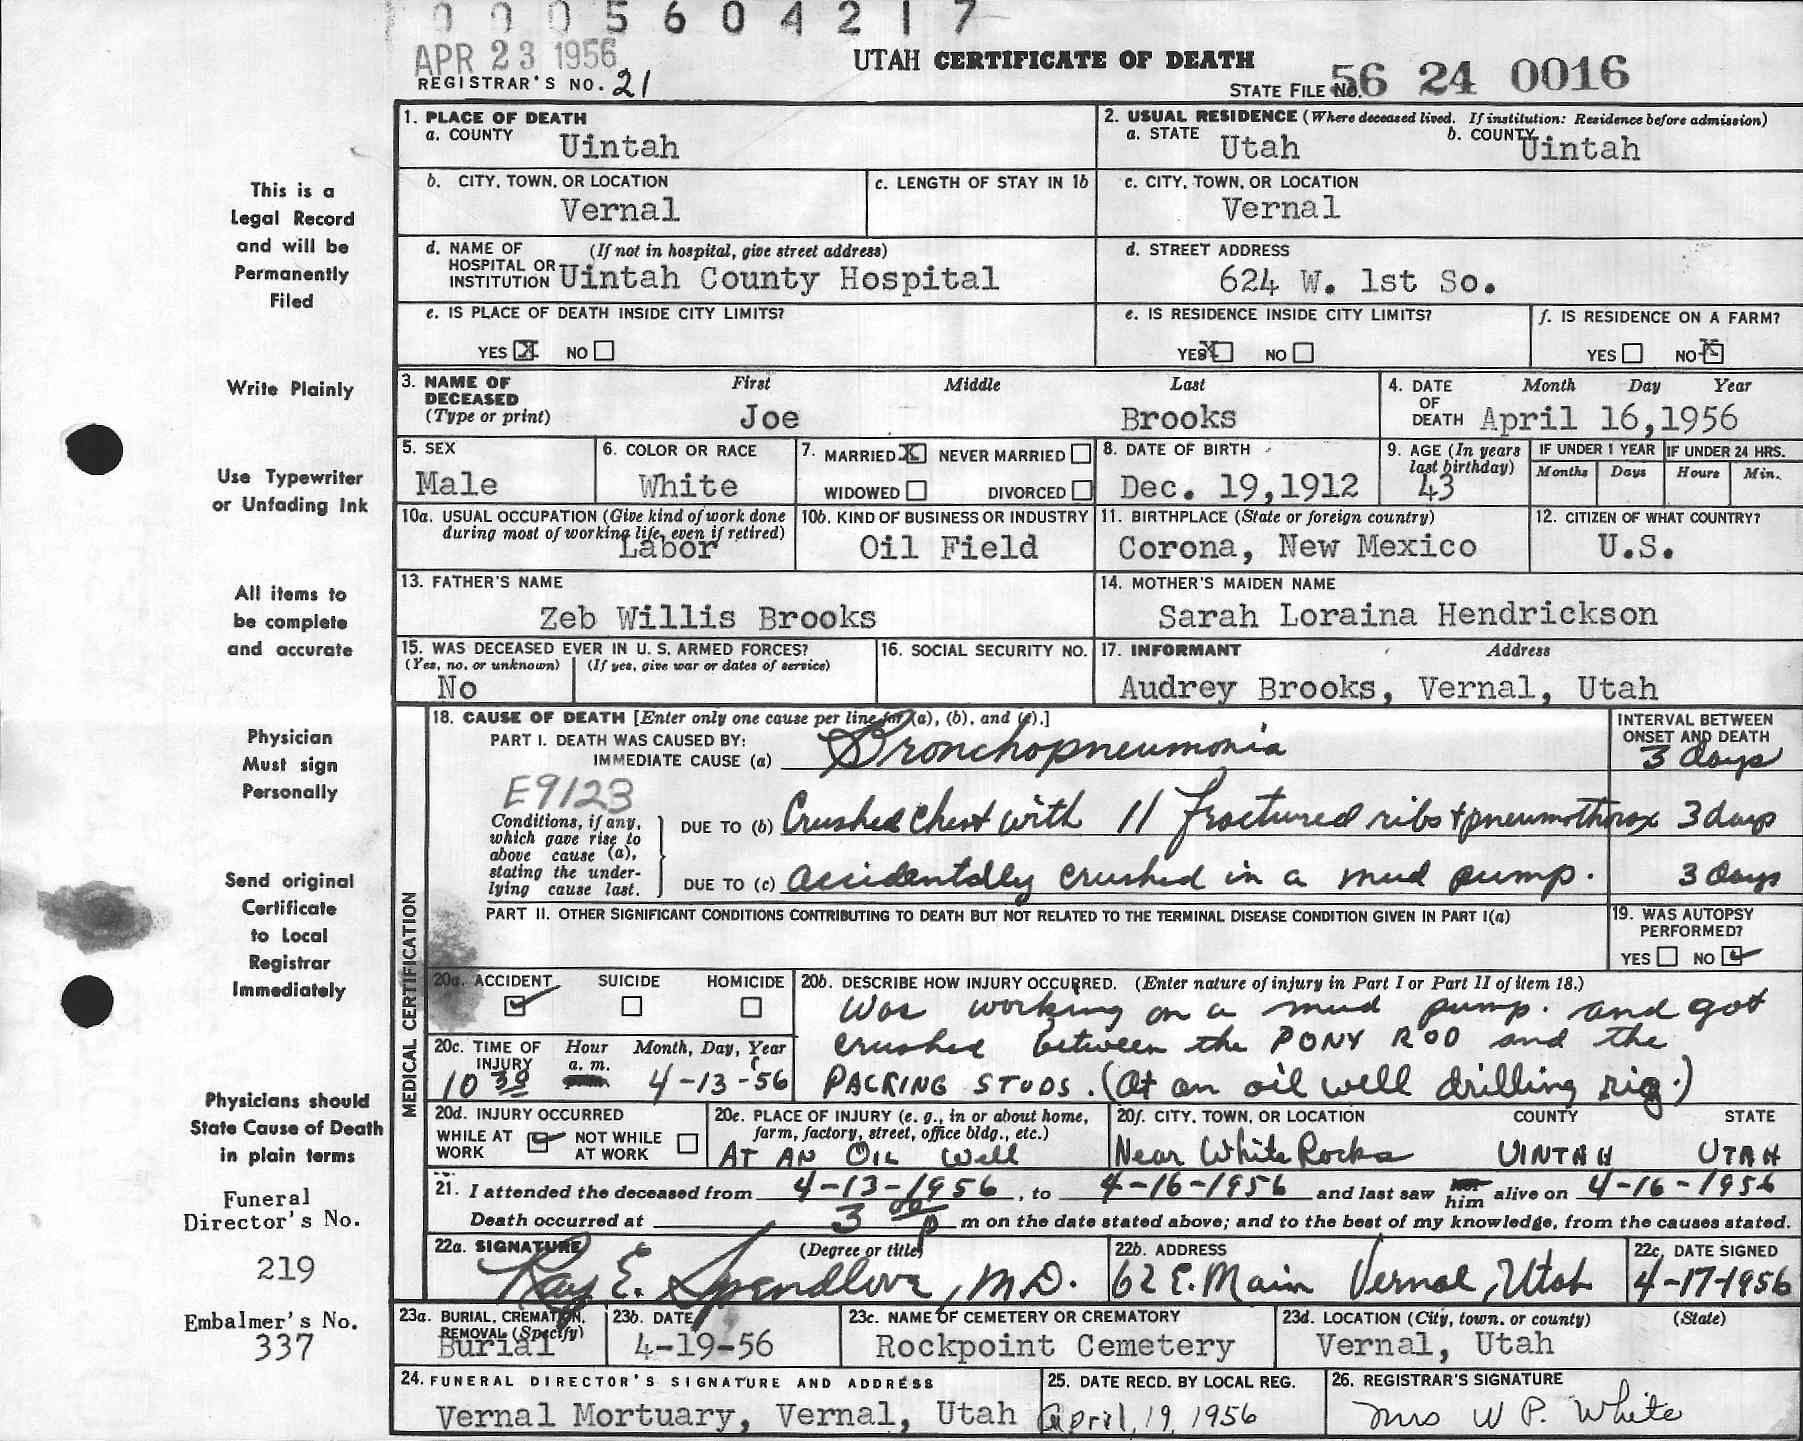 0 0 0 5 6 0 4 2 1 7
APR 23 1956
UTAH CERTIFICATE OF DEATH
REGISTRAR'S NO. 21
STATE FILE NO. 56 24 0016
This is a
Legal Record
and will be
Permanently
Filed
Write Plainly
Use Typewriter
or Unfading Ink
All items to
be complete
and accurate
Physician
Must sign
Personally
Send original
Certificate
to Local
Registrar
Immediately
Physicians should
State Cause of Death
in plain terms
Funeral
Director's No.
219
Embalmer's No.
337
1. PLACE OF DEATH
a. COUNTY Uintah
2. USUAL RESIDENCE (Where deceased lived. If institution: Residence before admission)
a. STATE Utah b. COUNTY Uintah
b. CITY, TOWN, OR LOCATION Vernal
c. LENGTH OF STAY IN 1b
c. CITY, TOWN, OR LOCATION Vernal
d. NAME OF HOSPITAL OR INSTITUTION (If not in hospital, give street address)
Uintah County Hospital
d. STREET ADDRESS
624 W. 1st So.
e. IS PLACE OF DEATH INSIDE CITY LIMITS?
YES X NO
e. IS RESIDENCE INSIDE CITY LIMITS?
YES X NO
f. IS RESIDENCE ON A FARM?
YES NO X
3. NAME OF DECEASED (Type or print)
First Middle Last
Joe Brooks
4. DATE OF DEATH Month Day Year
April 16,1956
5. SEX
Male
6. COLOR OR RACE
White
7. MARRIED X NEVER MARRIED
WIDOWED DIVORCED
8. DATE OF BIRTH
Dec. 19,1912
9. AGE (In years last birthday)
43
IF UNDER 1 YEAR
Months Days
IF UNDER 24 HRS.
Hours Min.
10a. USUAL OCCUPATION (Give kind of work done during most of working life, even if retired)
Labor
10b. KIND OF BUSINESS OR INDUSTRY
Oil Field
11. BIRTHPLACE (State or foreign country)
Corona, New Mexico
12. CITIZEN OF WHAT COUNTRY?
U.S.
13. FATHER'S NAME
Zeb Willis Brooks
14. MOTHER'S MAIDEN NAME
Sarah Loraina Hendrickson
15. WAS DECEASED EVER IN U. S. ARMED FORCES?
(Yes, no, or unknown) (If yes, give war or dates of service)
No
16. SOCIAL SECURITY NO.
17. INFORMANT Address
Audrey Brooks, Vernal, Utah
MEDICAL CERTIFICATION
18. CAUSE OF DEATH [Enter only one cause per line for (a), (b), and (c).]
INTERVAL BETWEEN ONSET AND DEATH
PART I. DEATH WAS CAUSED BY:
IMMEDIATE CAUSE (a) Bronchopneumonia 3 days
E9123
Conditions, if any, which gave rise to above cause (a), stating the underlying cause last.
DUE TO (b) Crushed Chest with 11 fractured ribs + pneumothorax 3 days
DUE TO (c) accidentally crushed in a mud pump. 3 days
PART II. OTHER SIGNIFICANT CONDITIONS CONTRIBUTING TO DEATH BUT NOT RELATED TO THE TERMINAL DISEASE CONDITION GIVEN IN PART I(a)
19. WAS AUTOPSY PERFORMED?
YES NO
20a. ACCIDENT SUICIDE HOMICIDE
20b. DESCRIBE HOW INJURY OCCURRED. (Enter nature of injury in Part I or Part II of item 18.)
Was working on a mud pump. and got
crushed between the PONY ROD and the
PACKING STUDS. (At an oil well drilling rig.)
20c. TIME OF INJURY Hour Month, Day, Year
10 30 a. m. 4-13-56
20d. INJURY OCCURRED
WHILE AT WORK NOT WHILE AT WORK
20e. PLACE OF INJURY (e. g., in or about home, farm, factory, street, office bldg., etc.)
AT AN OIL Well
20f. CITY, TOWN, OR LOCATION COUNTY STATE
Near White Rocks UINTAH UTAH
21. I attended the deceased from 4-13-1956, to 4-16-1956 and last saw him alive on 4-16-1956
Death occurred at 3 00 p m on the date stated above; and to the best of my knowledge, from the causes stated.
22a. SIGNATURE (Degree or title)
Ray E. Spendlove, M.D.
22b. ADDRESS
62 E. Main Vernal, Utah
22c. DATE SIGNED
4-17-1956
23a. BURIAL, CREMATION, REMOVAL (Specify)
Burial
23b. DATE
4-19-56
23c. NAME OF CEMETERY OR CREMATORY
Rockpoint Cemetery
23d. LOCATION (City, town, or county) (State)
Vernal, Utah
24. FUNERAL DIRECTOR'S SIGNATURE AND ADDRESS
Vernal Mortuary, Vernal, Utah
25. DATE RECD. BY LOCAL REG.
April, 19, 1956
26. REGISTRAR'S SIGNATURE
Mrs W P. White